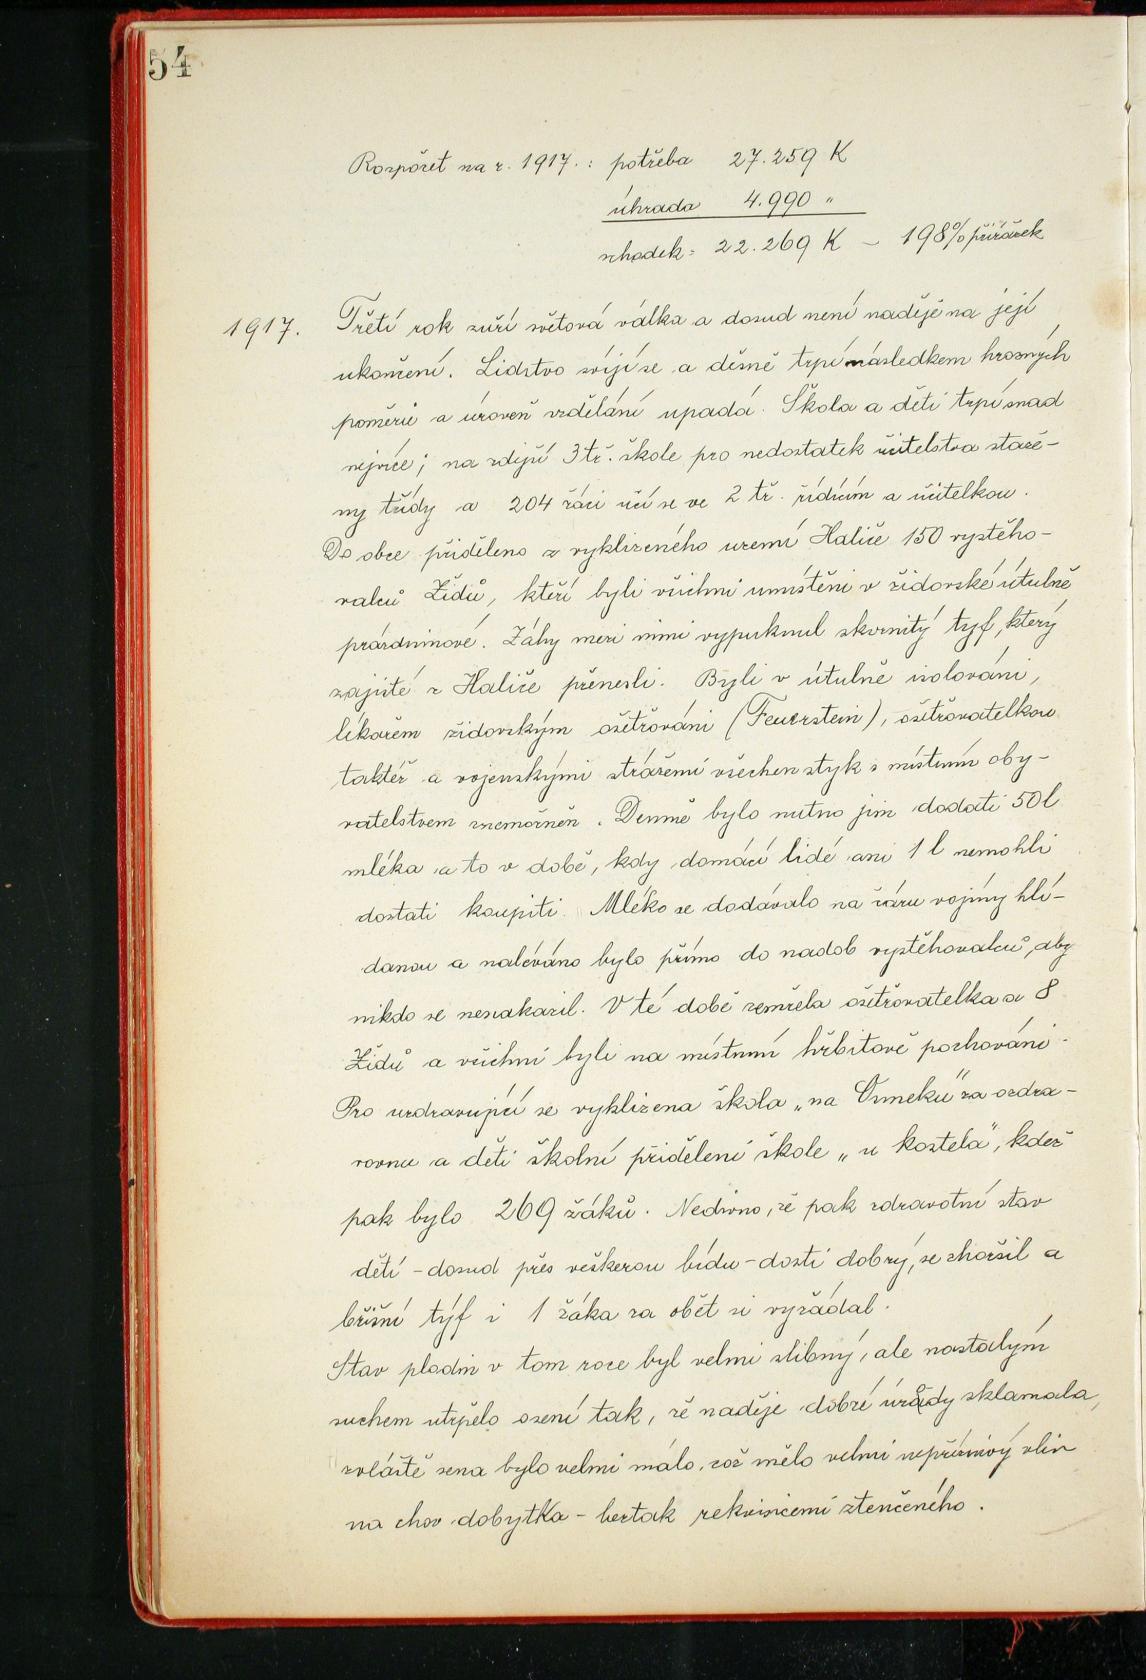 54
Rozpočet na r. 1917. : potřeba 27.259 K
úhrada 4.990 "
schodek = 22.269 K – 198% přirážek
1917. Třetí rok zuří světová válka a dosud není naděje na její
ukončení. Lidstvo svíjí se a děsně trpí následkem hrozných
poměrů a úroveň vzdělání upadá. Škola a děti trpí snad
nejvíce; na zdejší 3 tř. škole pro nedostatek učitelstva staže-
ny třídy a 204 žáci učí se ve 2 tř. řídícím a učitelkou.
Do obce přiděleno z vyklizeného uzemí Haliče 150 vystěho-
valců Židů, kteří byli všichni umístěni v židovské útulně
prázdninové. Záhy mezi nimi vypuknul skvrnitý tyf, který
zajisté z Haliče přenesli. Byli v útulně isolováni,
lékařem židovským ošetřováni (Feuerstein), ošetřovatelkou
taktéž a vojenskými strážemi všechen styk s místním oby-
vatelstvem znemožněn. Denně bylo nutno jim dodati 50 l
mléka a to v době, kdy domácí lidé ani 1 l nemohli
dostati koupiti. Mléko se dodávalo na čáru vojíny hlí-
danou a naléváno bylo přímo do nadob vystěhovalců, aby
nikdo se nenakazil. V té době zemřela ošetřovatelka a 8
Židů a všichni byli na místním hřbitově pochováni.
Pro uzdravující se vyklizena škola „na Vrmeku" za ozdra-
vovnu a děti školní přidělení škole „u kostela", kdež
pak bylo 269 žáků. Nedivno, že pak zdravotní stav
dětí – dosud přes veškerou bídu – dosti dobrý, se zhoršil a
břišní týf i 1 žáka za oběť si vyžádal.
Stav plodin v tom roce byl velmi slibný, ale nastalým
suchem utrpělo osení tak, že naděje dobré úrody sklamala,
zvláště sena bylo velmi málo, což mělo velmi nepříznivý vliv
na chov dobytka – beztak rekvisicemi ztenčeného.